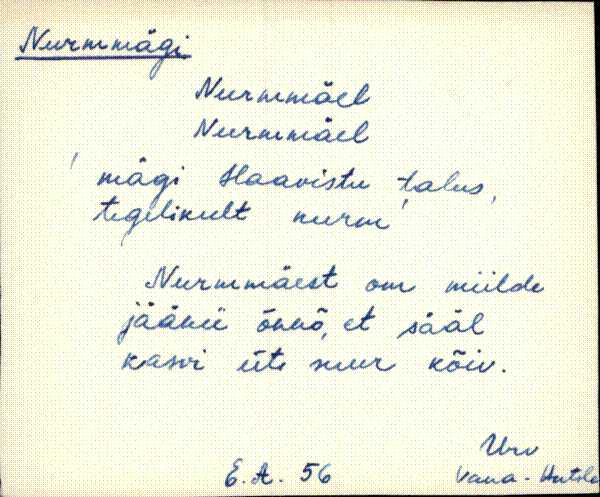 Nurmmägi
Nurmmäel
Nurmmäel
' mägi Haavistu talus,
tegelikult nurm '
Nurmmäest om miilde
jäänü õnnõ, et sääl
kasvi üts suur kõiv.
Urv
E.A. 56 Vana-Antsla